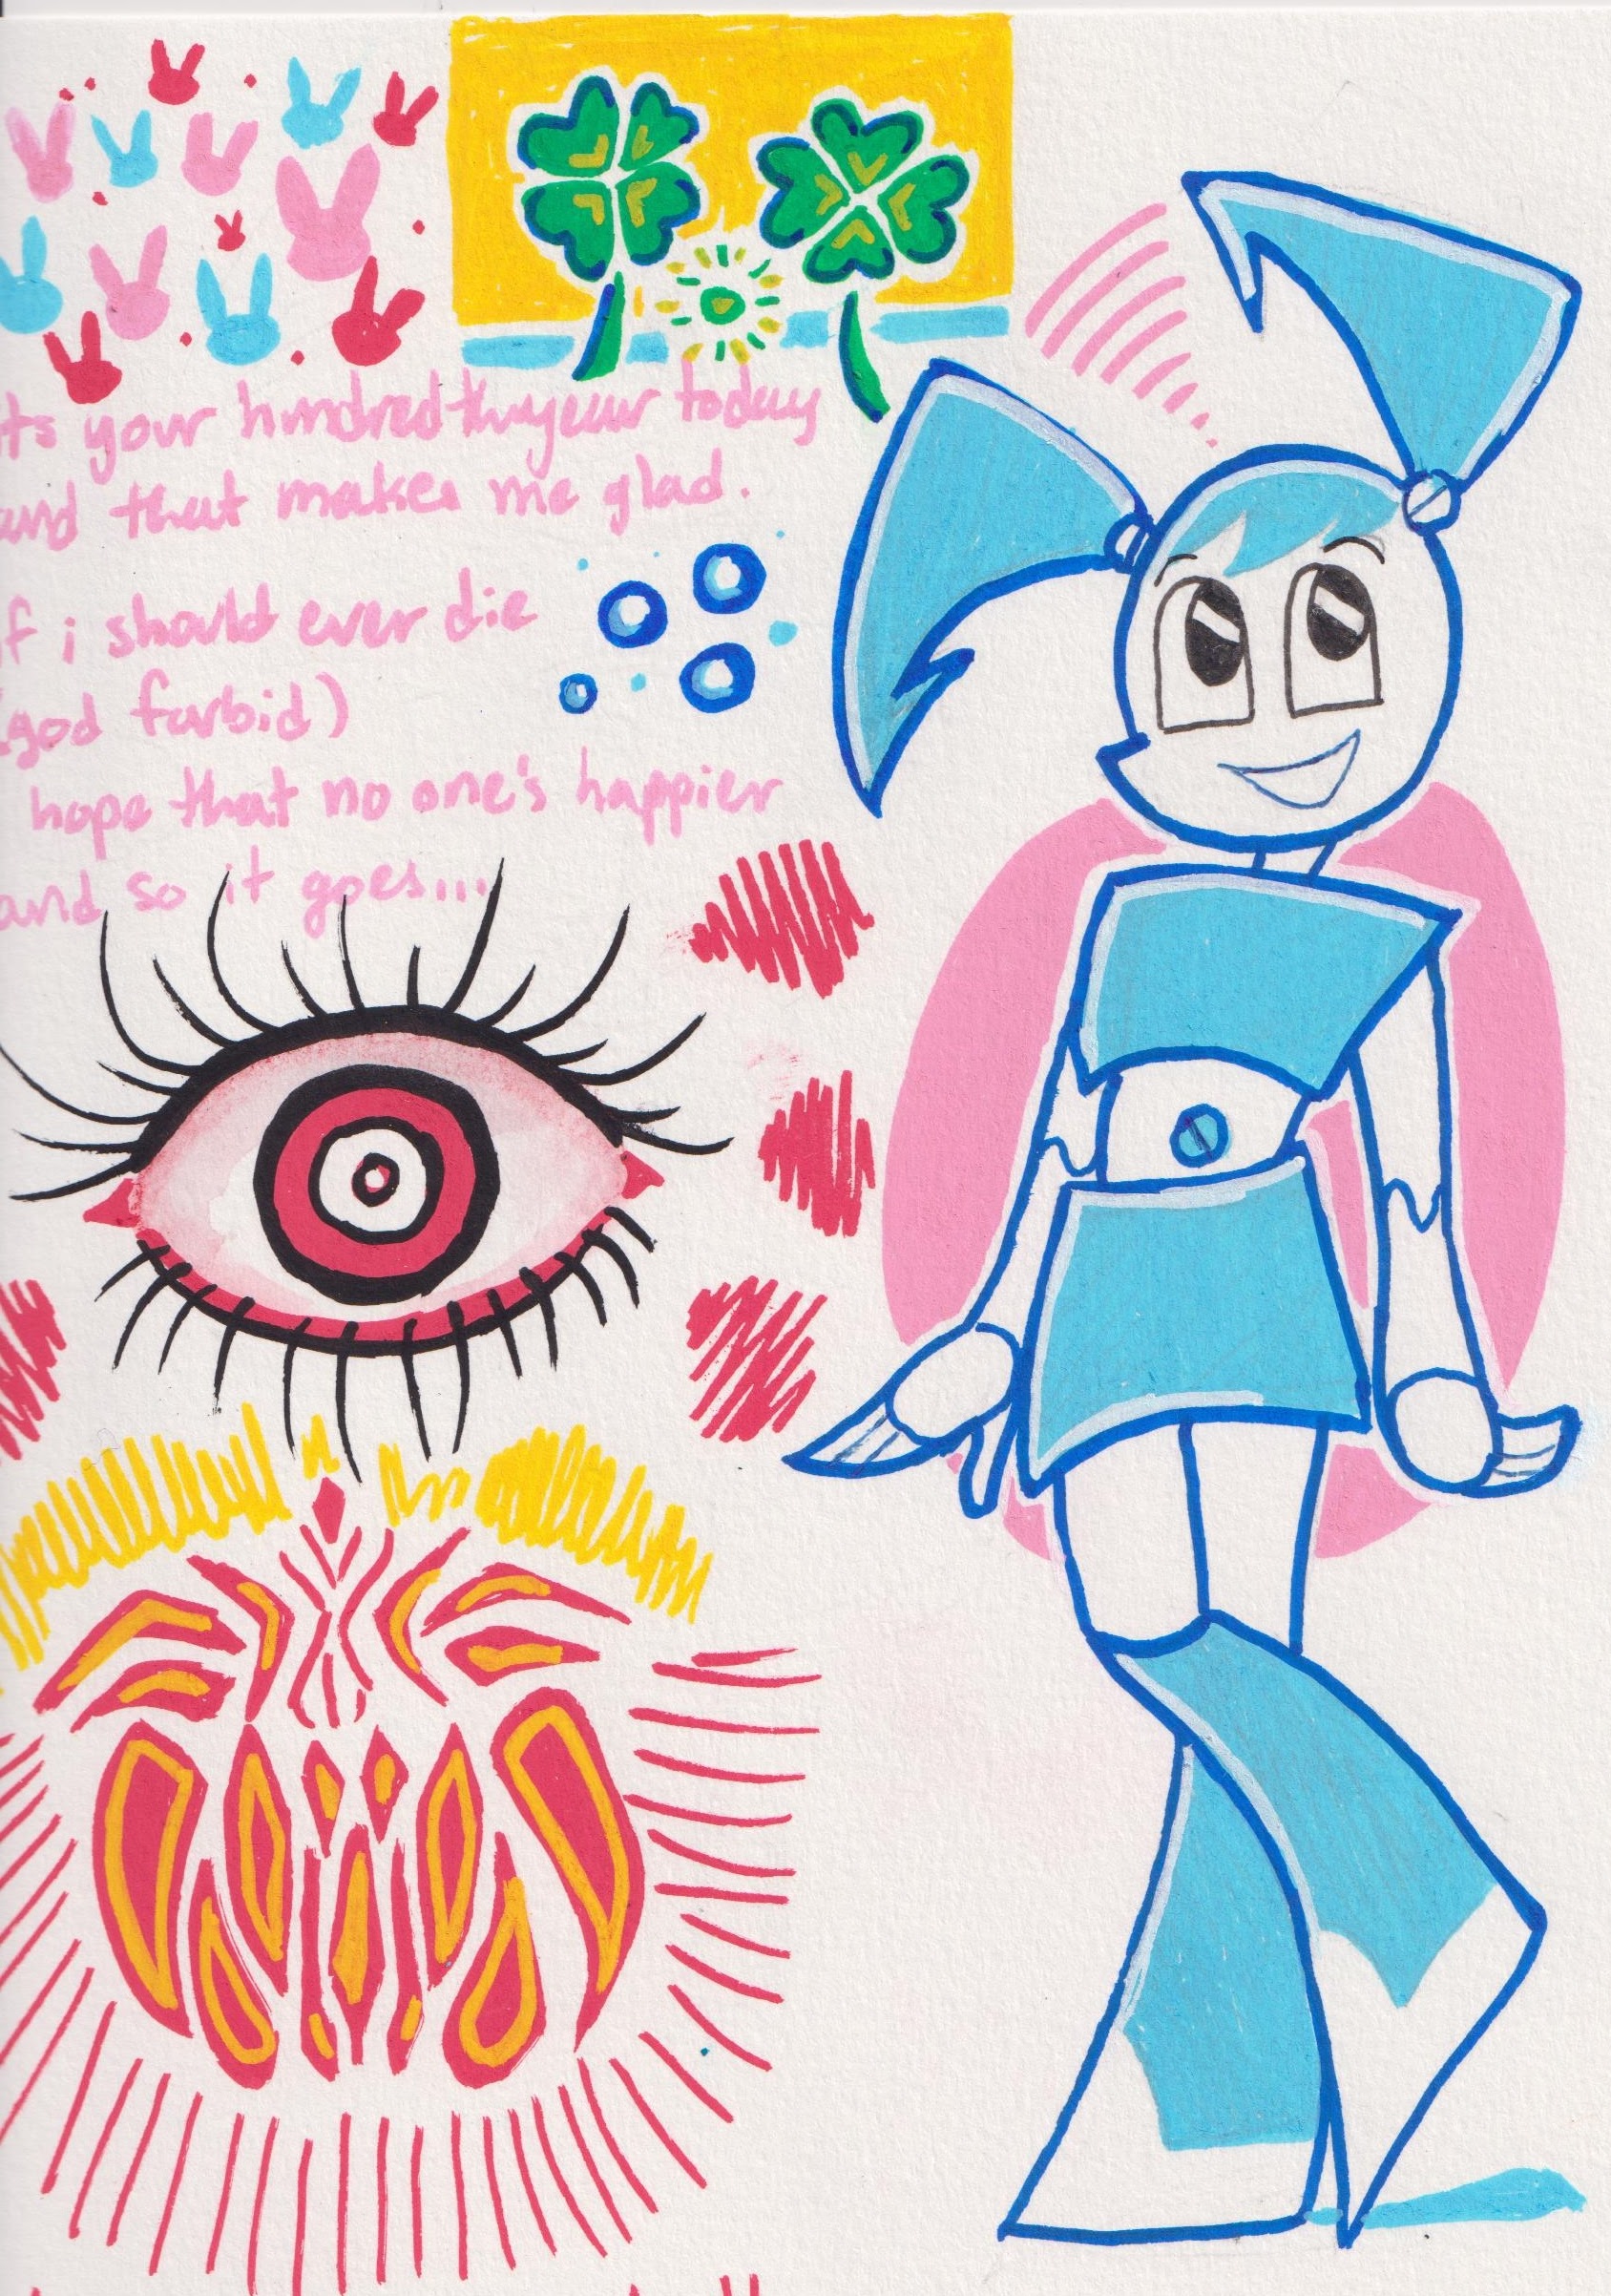 its your hundredth year today
and that makes me glad.
if i should ever die
(god forbid)
hope that no one's happier
and so it goes...